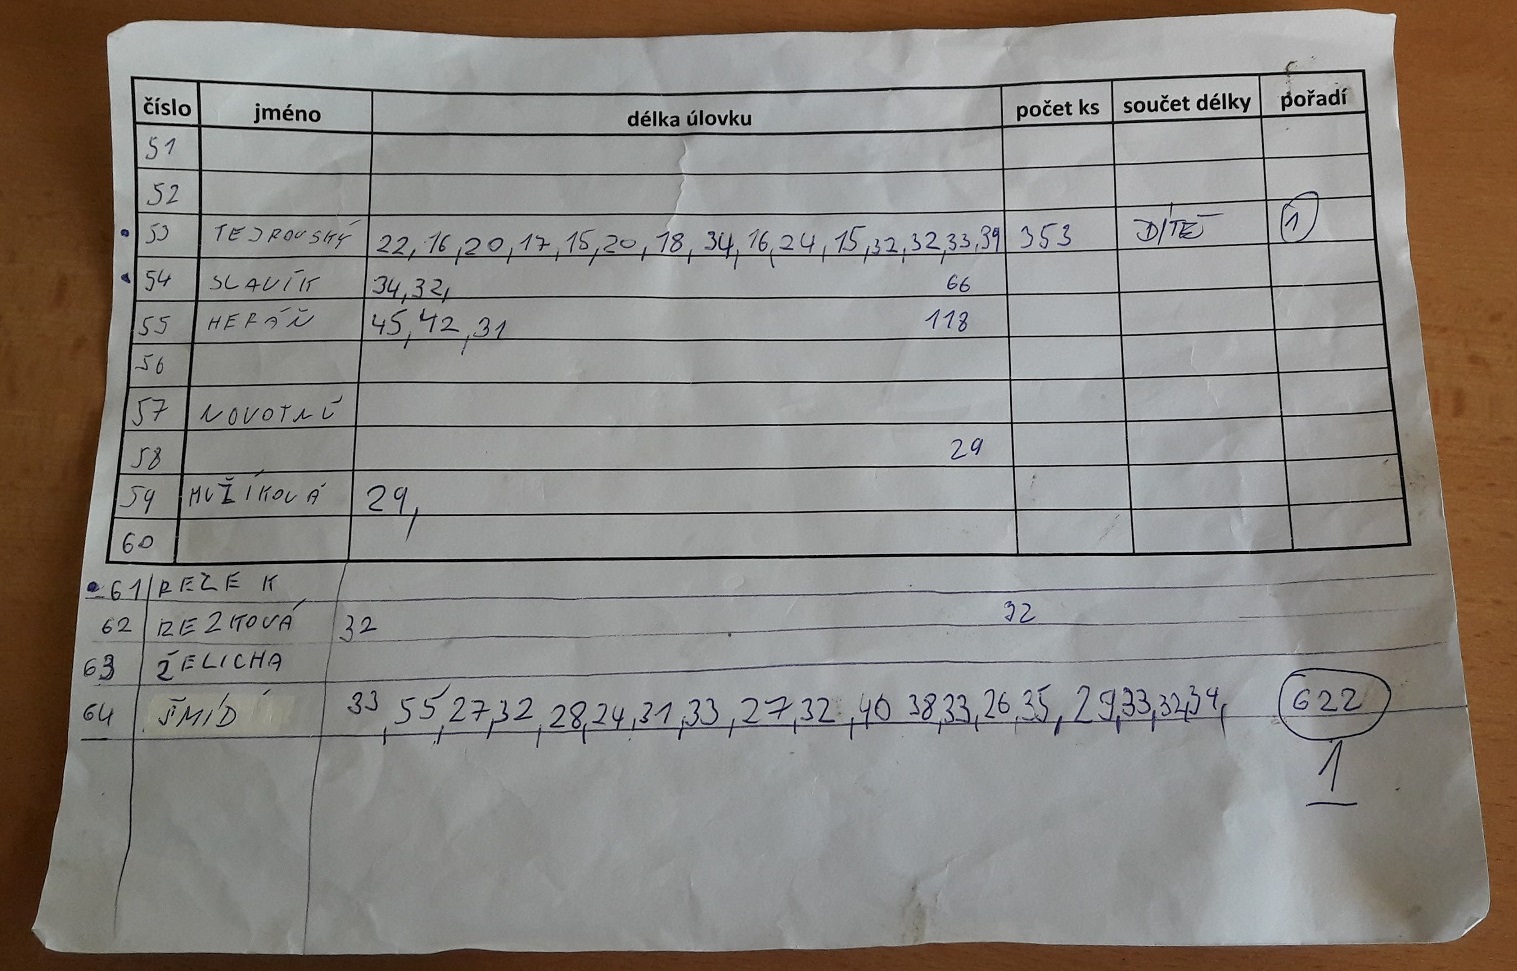 číslo jméno délka úlovku počet ks součet délky pořadí
51
52
53 TEJROVSKÝ 22, 16, 20, 17, 15, 20, 18, 34, 16, 24, 15, 32, 32, 33, 39 353 DÍTĚ 1
54 SLAVÍK 34, 32, 66
55 HEFÁŇ 45, 42, 31 118
56
57 NOVOTNÝ
58 29
59 MUŽÍKOVÁ 29,
60
61 REZEK
62 REZKOVÁ 32 32
63 ŽELICHA
64 ŠMÍD 33, 55, 27, 32, 28, 24, 31, 33, 27, 32, 40 38, 33, 26, 35, 29, 33, 32, 34, 622
1